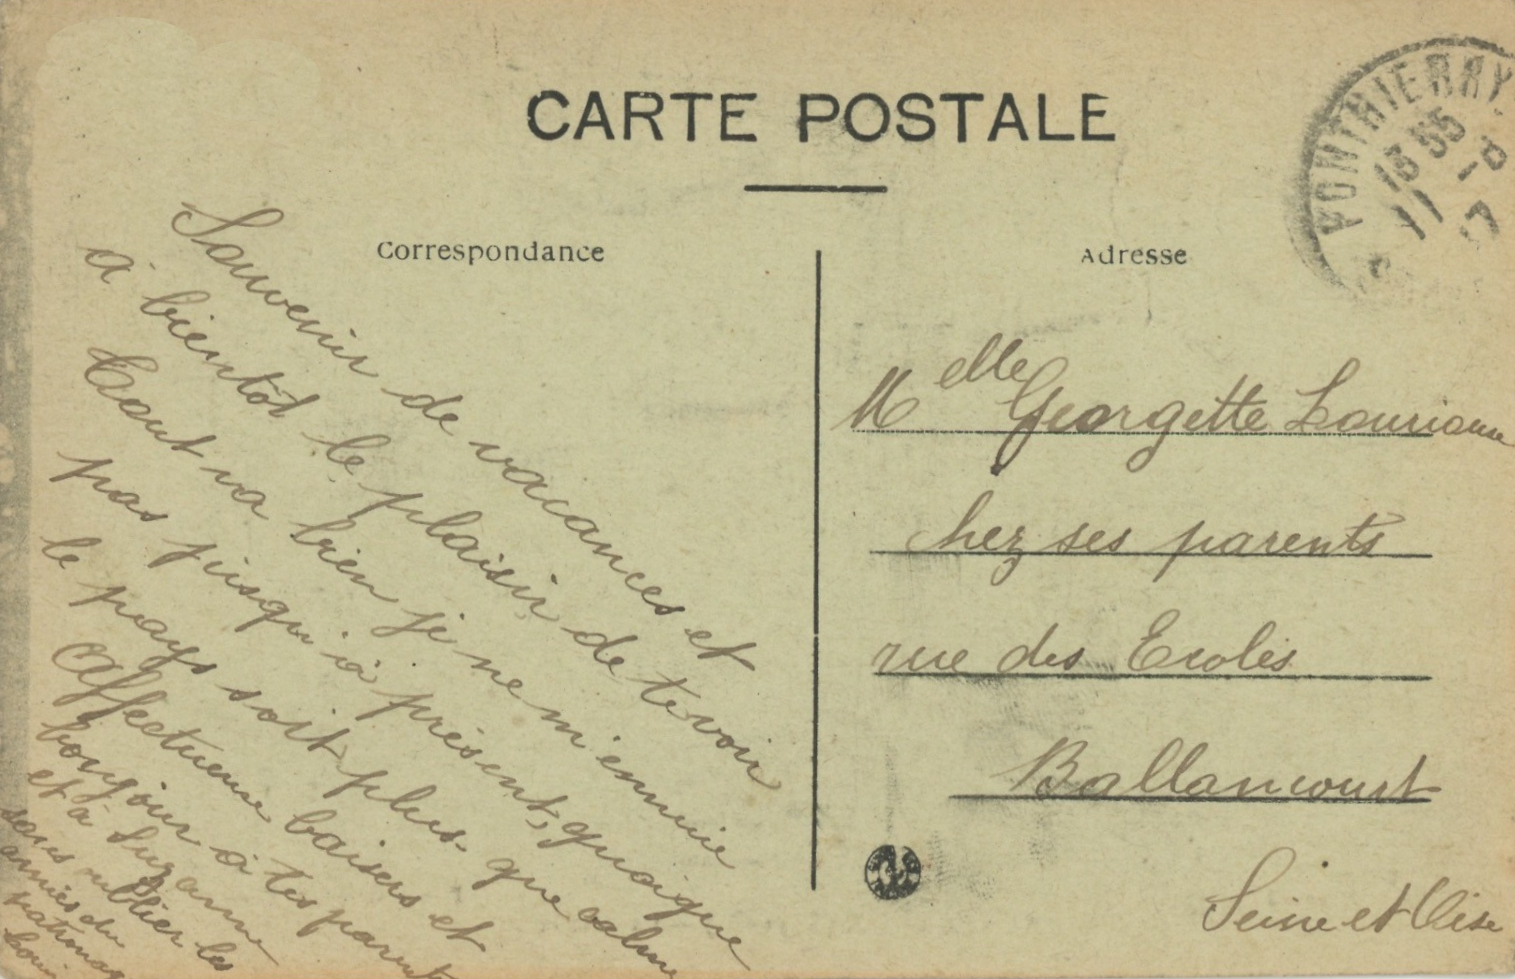 CARTE POSTALE
Correspondance
Souvenir de vacances et
à bientôt le plaisir de te voir
Tout va bien je ne m'ennuie
pas jusqu'à présent, quoique
le pays soit plus que calme
Affectueux baisers et
bonjour à tes parents
et à Suzanne
sans oublier les
amies du
patronage
Adresse
Melle Georgette
chez ses parents
rue des Ecoles
Ballancourt
Seine et Oise
PONTHIERRY
13 55
11